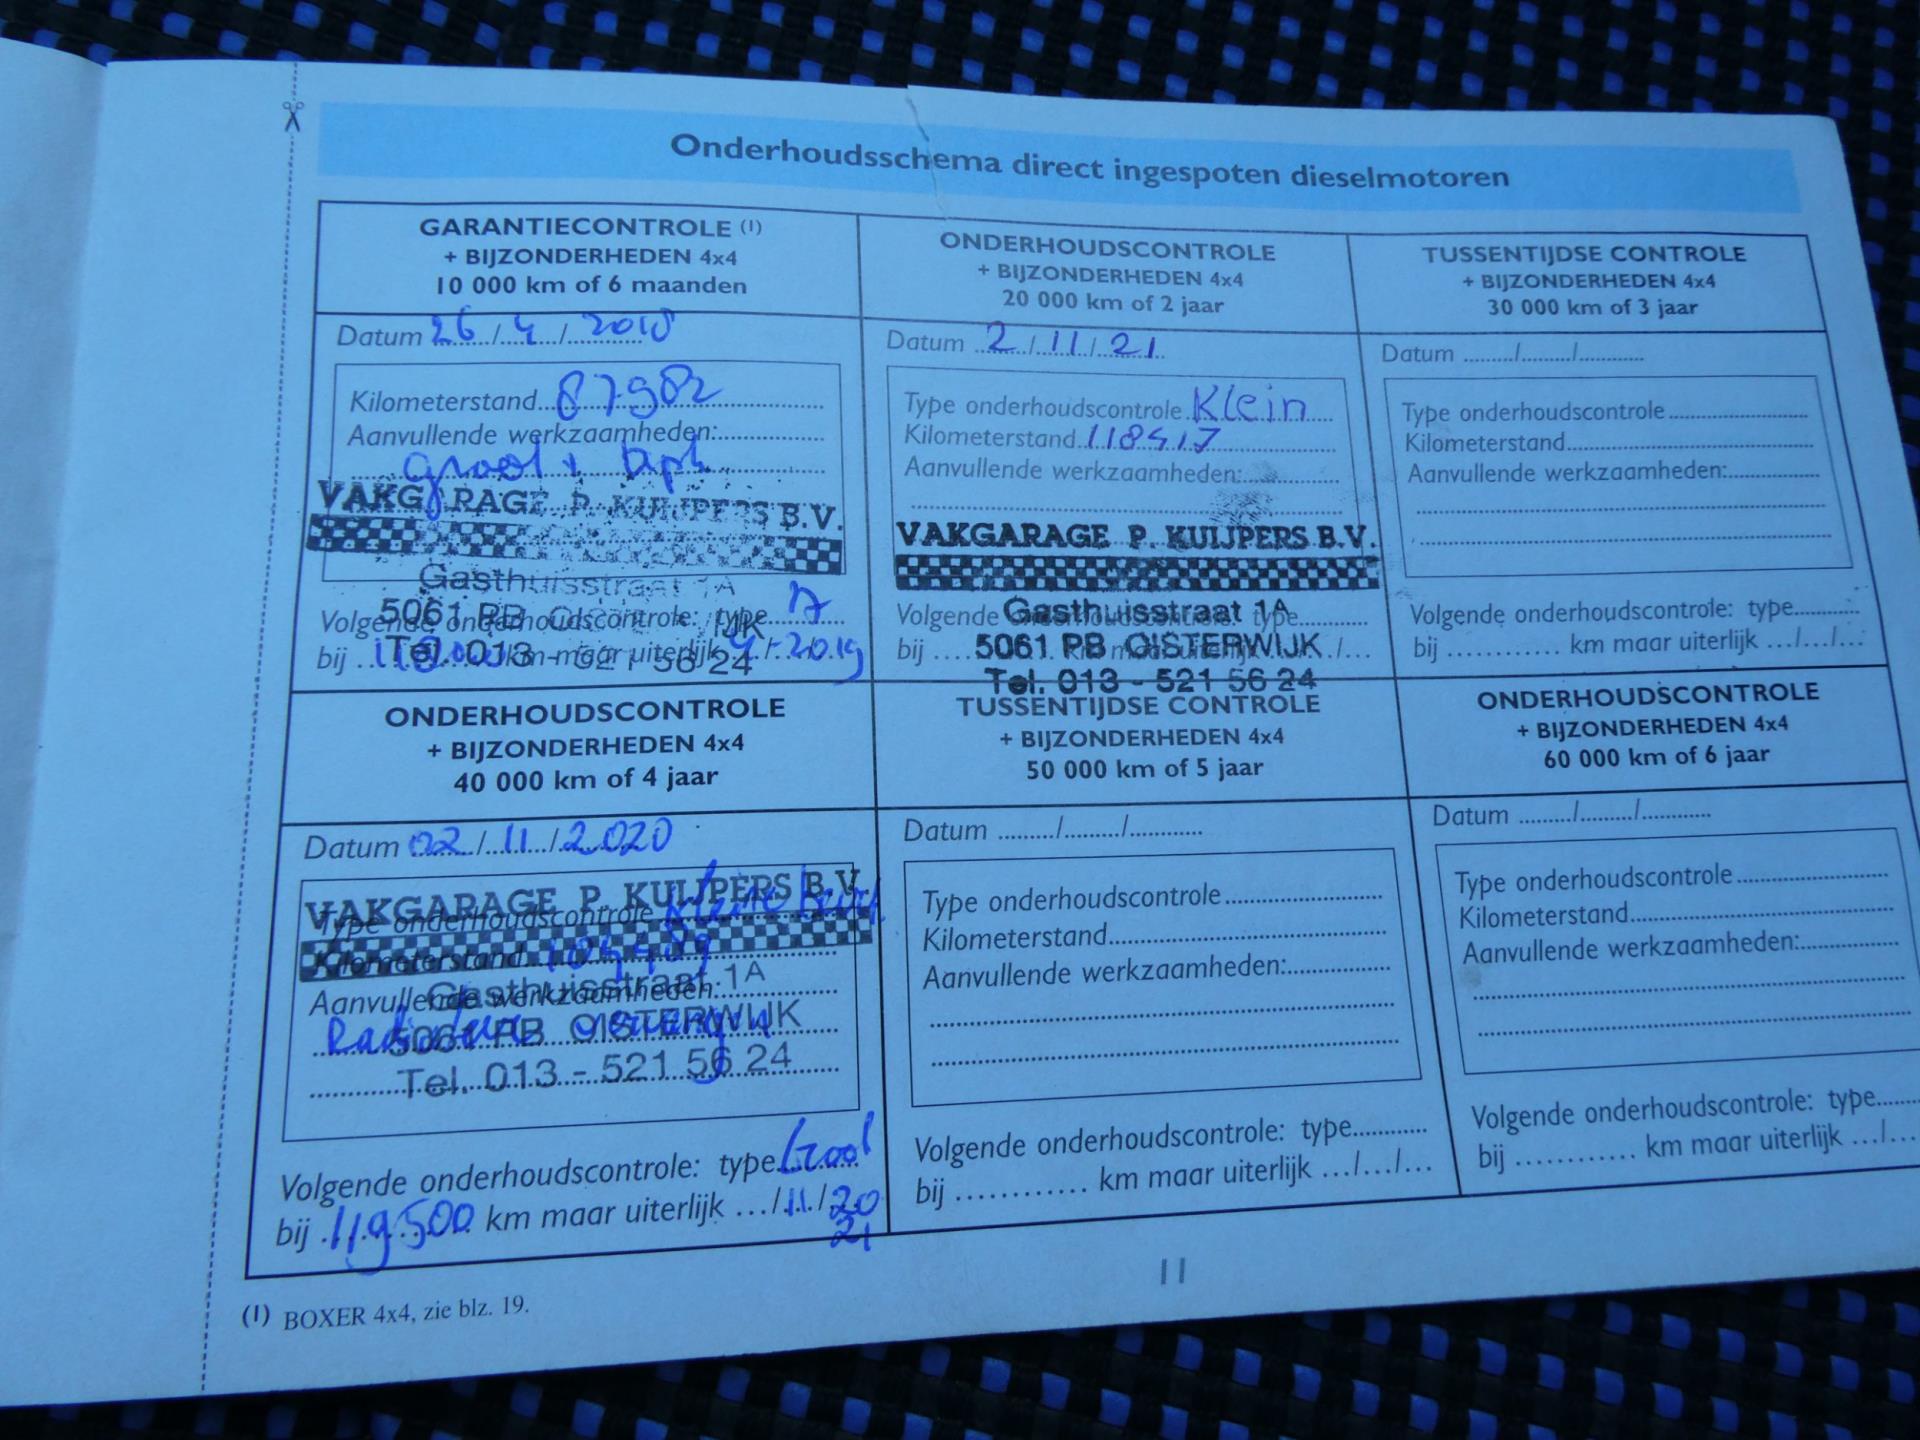 Onderhoudsschema direct ingespoten dieselmotoren
GARANTIECONTROLE (1)
+ BIJZONDERHEDEN 4x4
10 000 km of 6 maanden
Datum 26/4/2018
Kilometerstand 87982
Aanvullende werkzaamheden:
VAKGARAGE P. KUIJPERS B.V.
Gasthuisstraat 1A
5061 PB
Volgende onderhoudscontrole: type
Tel. 013 - 521 56 24
bij km maar uiterlijk 4-2019
ONDERHOUDSCONTROLE
+ BIJZONDERHEDEN 4x4
20 000 km of 2 jaar
Datum 2/11/21
Type onderhoudscontrole Klein
Kilometerstand 118417
Aanvullende werkzaamheden:
VAKGARAGE P. KUIJPERS B.V.
Volgende onderhoudscontrole: type
Gasthuisstraat 1A
bij km maar uiterlijk
5061 PB OISTERWIJK
Tel. 013 - 521 56 24
TUSSENTIJDSE CONTROLE
+ BIJZONDERHEDEN 4x4
30 000 km of 3 jaar
Datum ...../...../.....
Type onderhoudscontrole
Kilometerstand
Aanvullende werkzaamheden:
Volgende onderhoudscontrole: type
bij ............ km maar uiterlijk .../.../...
ONDERHOUDSCONTROLE
+ BIJZONDERHEDEN 4x4
40 000 km of 4 jaar
Datum 02/11/2020
VAKGARAGE P. KUIJPERS B.V.
Type onderhoudscontrole Kleine beurt
Kilometerstand 104489
Gasthuisstraat 1A
Aanvullende werkzaamheden:
5061 PB OISTERWIJK
Tel. 013 - 521 56 24
Volgende onderhoudscontrole: type Groot
bij 119500 km maar uiterlijk .../11/20
21
TUSSENTIJDSE CONTROLE
+ BIJZONDERHEDEN 4x4
50 000 km of 5 jaar
Datum ...../...../.....
Type onderhoudscontrole
Kilometerstand
Aanvullende werkzaamheden:
Volgende onderhoudscontrole: type
bij ............ km maar uiterlijk .../.../...
ONDERHOUDSCONTROLE
+ BIJZONDERHEDEN 4x4
60 000 km of 6 jaar
Datum ...../...../.....
Type onderhoudscontrole
Kilometerstand
Aanvullende werkzaamheden:
Volgende onderhoudscontrole: type
bij ............ km maar uiterlijk .../...
(1) BOXER 4x4, zie blz. 19.
11